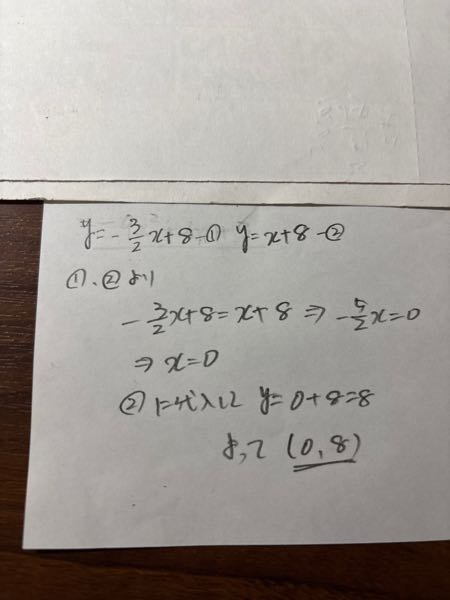 y=-3/2x+8-① y=x+8-②
①、②より
-3/2x+8=x+8⇒-5/2x=0
⇒x=0
②に代入して y=0+8=8
よって (0,8)